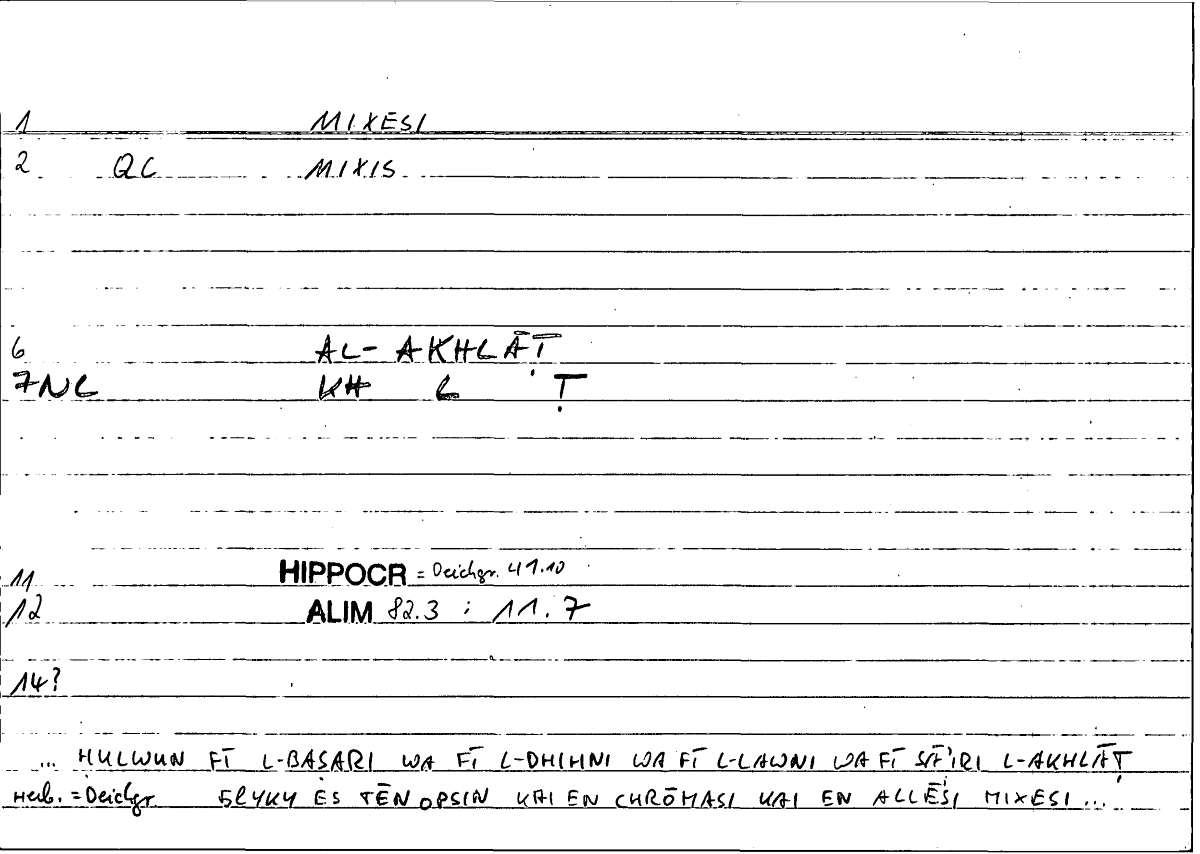 1 MIXESI
2 QC MIXIS
6 AL-AKHLĀṬ
7NC KH L Ṭ
11 HIPPOCR = Deichgr. 41.10
12 ALIM 82.3 : 11.7
14?
... HULWUN FĪ L-BAṢARI WA FĪ L-DHIHNI WA FĪ L-LAWNI WA FĪ SĀ'IRI L-AKHLĀṬ
Heib. = Deichgr. GLYKY ES TĒN OPSIN KAI EN CHRŌMASI KAI EN ALLĒSI MIXESI ...